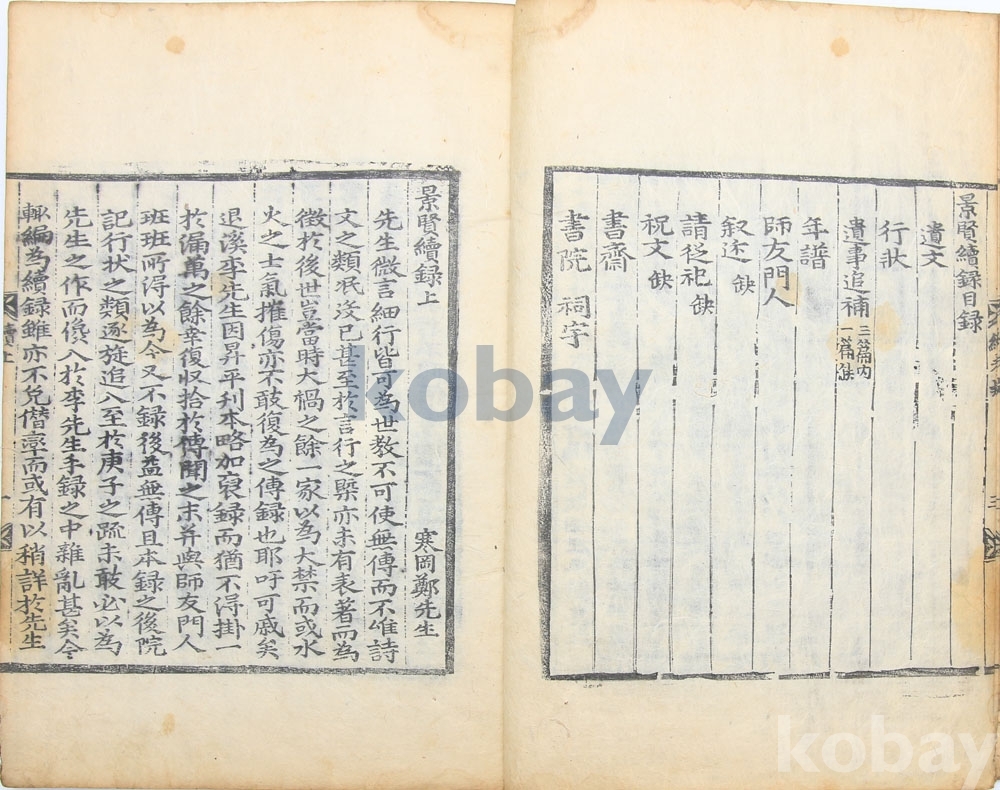 景賢續録目録
遺文
行狀
遺事追補 三篇内一篇缺
年譜
師友門人
叙述 缺
請從祀 缺
祝文 缺
書齋
書院 祠宇
景賢續録上
寒岡鄭先生
先生微言細行皆可為世教不可使無傳而不唯詩
文之類泯沒已甚至於言行之槩亦未有表著而為
徴於後世豈當時大禍之餘一家以為大禁而或水
火之士氣摧傷亦不敢復為之傳録也耶吁可慼矣
退溪李先生因昇平刋本略加裒録而猶不得掛一
於漏萬之餘幸復収拾於傳聞之末并與師友門人
班班所得以為今又不録後益無傳且本録之後院
記行狀之類逐旋追入至於庚子之疏未敢必以為
先生之作而儳入於李先生手録之中雜亂甚矣今
輙編為續録雖亦不免僭率而或有以稍詳於先生
續上
一
kobay
kobay